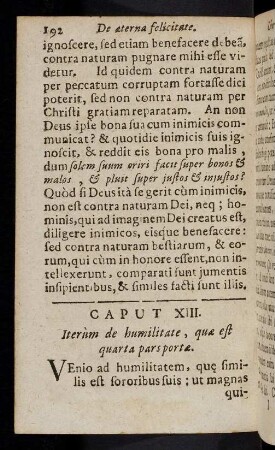 192 De æterna felicitate.
ignoscere, sed etiam benefacere debeã,
contra naturam pugnare mihi esse vi-
detur. Id quidem contra naturam
per peccatum corruptam fortasse dici
poterit, sed non contra naturam per
Christi gratiam reparatam. An non
Deus ipse bona sua cum inimicis com-
municat? & quotidie inimicis suis ig-
noscit, & reddit eis bona pro malis,
dum solem suum oriri facit super bonos &
malos, & pluit super justos & injustos?
Quòd si Deus ità se gerit cùm inimicis,
non est contra naturam Dei, neq; ho-
minis, qui ad imaginem Dei creatus est,
diligere inimicos, eisque benefacere:
sed contra naturam bestiarum, & eo-
rum, qui cùm in honore essent, non in-
tellexerunt, comparati sunt jumentis
insipientibus, & similes facti sunt illis,
CAPUT XIII.
Iterùm de humilitate, quæ est
quarta pars portæ.
VEnio ad humilitatem, quę simi-
lis est sororibus suis; ut magnas
qui-